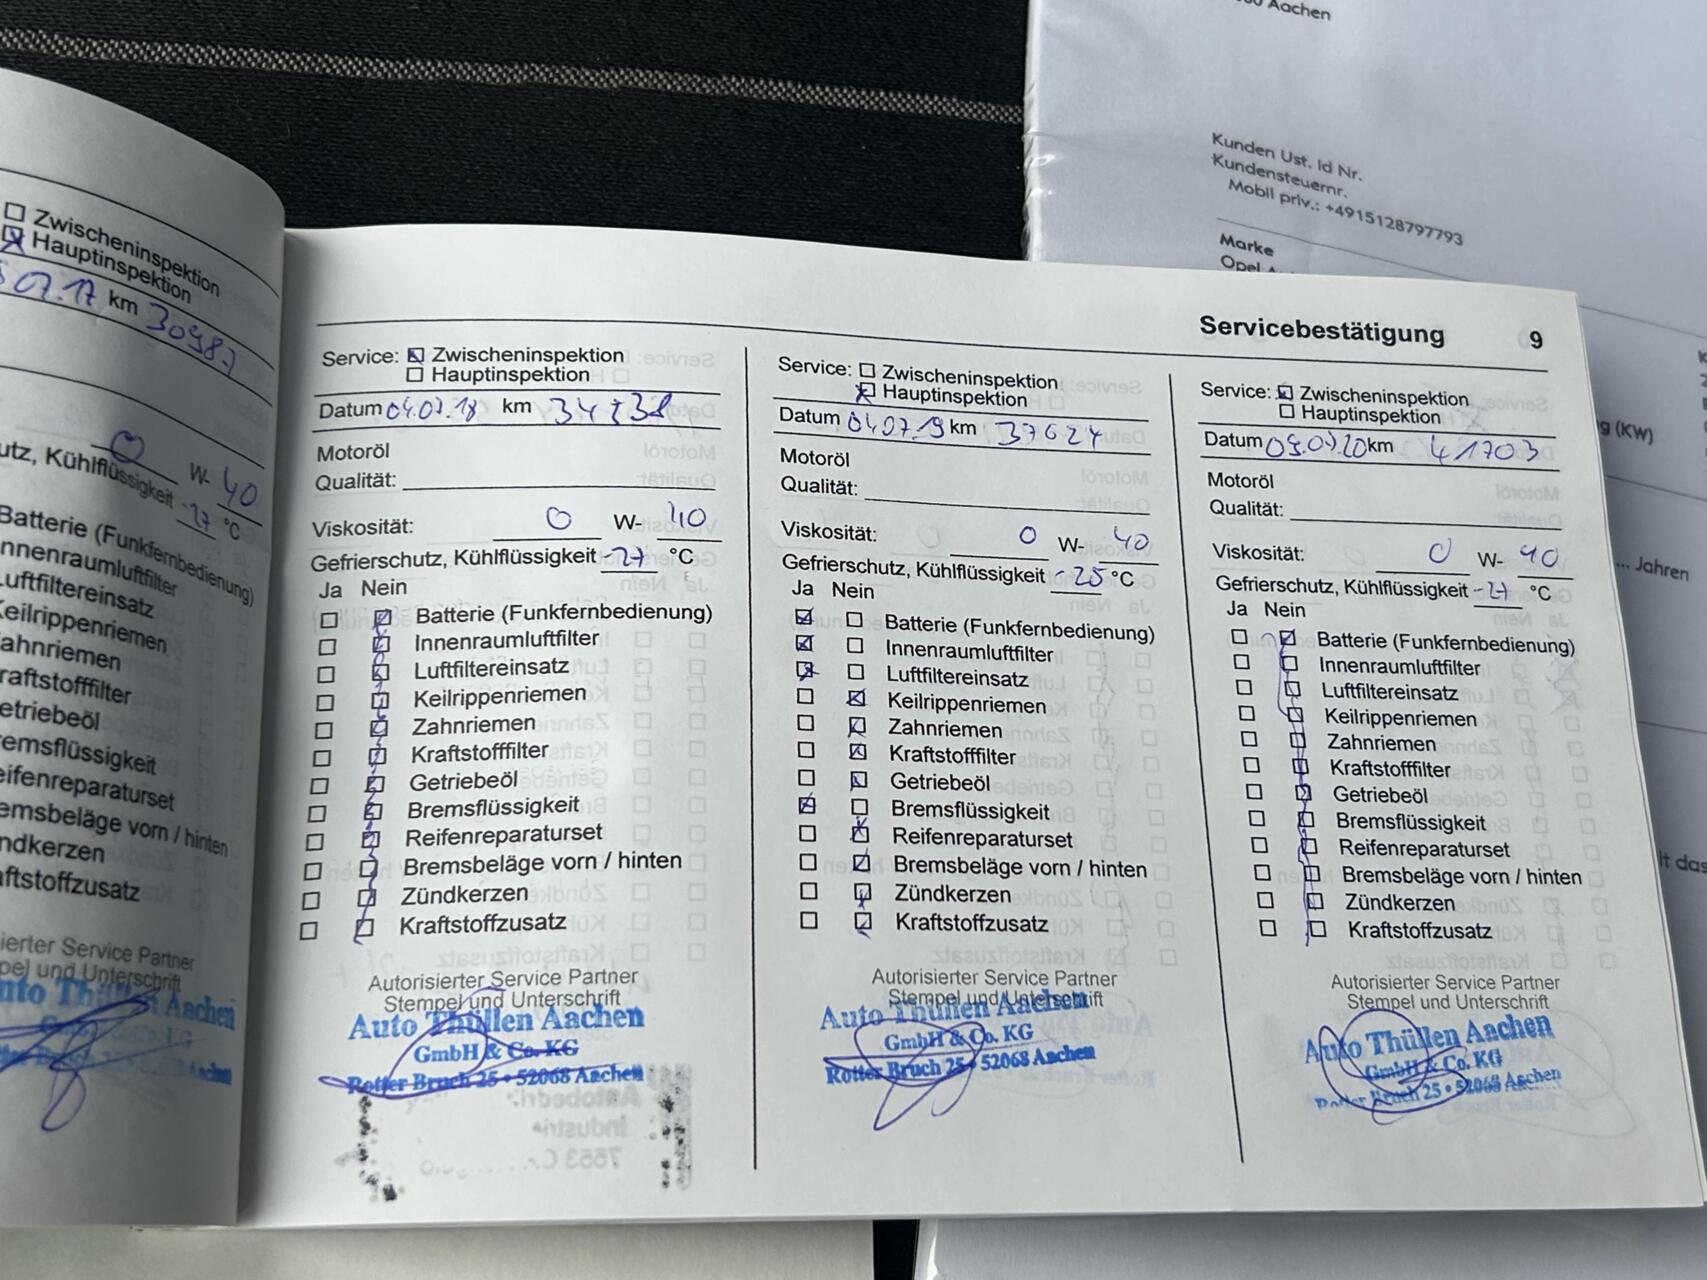 Aachen
Kunden Ust. Id Nr.
Kundensteuernr.
Mobil priv.: +4915128797793
Marke
Opel
g (KW)
... Jahren
lt das
☐ Zwischeninspektion
☒ Hauptinspektion
07.17 km
0 W- 40
utz, Kühlflüssigkeit -27 °C
Batterie (Funkfernbedienung)
nnenraumluftfilter
uftfiltereinsatz
Keilrippenriemen
ahnriemen
raftstofffilter
etriebeöl
emsflüssigkeit
eifenreparaturset
emsbeläge vorn / hinten
ndkerzen
aftstoffzusatz
ierter Service Partner
pel und Unterschrift
uto Thüllen Aachen
Servicebestätigung 9
Service: ☒ Zwischeninspektion
☐ Hauptinspektion
Datum 04.07.18 km
Motoröl
Qualität:
Viskosität: 0 W- 40
Gefrierschutz, Kühlflüssigkeit -27 °C
Ja Nein
☐ ☒ Batterie (Funkfernbedienung)
☐ ☒ Innenraumluftfilter
☐ ☒ Luftfiltereinsatz
☐ ☒ Keilrippenriemen
☐ ☒ Zahnriemen
☐ ☒ Kraftstofffilter
☐ ☒ Getriebeöl
☐ ☒ Bremsflüssigkeit
☐ ☒ Reifenreparaturset
☐ ☒ Bremsbeläge vorn / hinten
☐ ☒ Zündkerzen
☐ ☒ Kraftstoffzusatz
Autorisierter Service Partner
Stempel und Unterschrift
Auto Thüllen Aachen
GmbH & Co. KG
Rotter Bruch 25 • 52068 Aachen
Service: ☐ Zwischeninspektion
☒ Hauptinspektion
Datum 04.07.19 km 37624
Motoröl
Qualität:
Viskosität: 0 W- 40
Gefrierschutz, Kühlflüssigkeit -25 °C
Ja Nein
☒ ☐ Batterie (Funkfernbedienung)
☒ ☐ Innenraumluftfilter
☒ ☐ Luftfiltereinsatz
☐ ☒ Keilrippenriemen
☐ ☒ Zahnriemen
☐ ☒ Kraftstofffilter
☐ ☒ Getriebeöl
☒ ☐ Bremsflüssigkeit
☐ ☒ Reifenreparaturset
☐ ☒ Bremsbeläge vorn / hinten
☐ ☒ Zündkerzen
☐ ☒ Kraftstoffzusatz
Autorisierter Service Partner
Stempel und Unterschrift
Auto Thüllen Aachen
GmbH & Co. KG
Rotter Bruch 25 • 52068 Aachen
Service: ☒ Zwischeninspektion
☐ Hauptinspektion
Datum 09.07.20 km 41703
Motoröl
Qualität:
Viskosität: 0 W- 40
Gefrierschutz, Kühlflüssigkeit -27 °C
Ja Nein
☐ ☒ Batterie (Funkfernbedienung)
☐ ☒ Innenraumluftfilter
☐ ☒ Luftfiltereinsatz
☐ ☒ Keilrippenriemen
☐ ☒ Zahnriemen
☐ ☒ Kraftstofffilter
☐ ☒ Getriebeöl
☐ ☒ Bremsflüssigkeit
☐ ☒ Reifenreparaturset
☐ ☒ Bremsbeläge vorn / hinten
☐ ☒ Zündkerzen
☐ ☒ Kraftstoffzusatz
Autorisierter Service Partner
Stempel und Unterschrift
Auto Thüllen Aachen
GmbH & Co. KG
Rotter Bruch 25 • 52068 Aachen